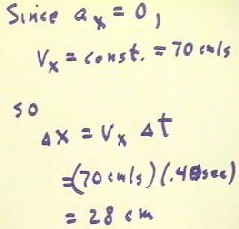 Since aₓ = 0,
Vₓ = const. = 70 cm/s
so
Δx = Vₓ Δt
=(70 cm/s)(.40sec)
= 28 cm